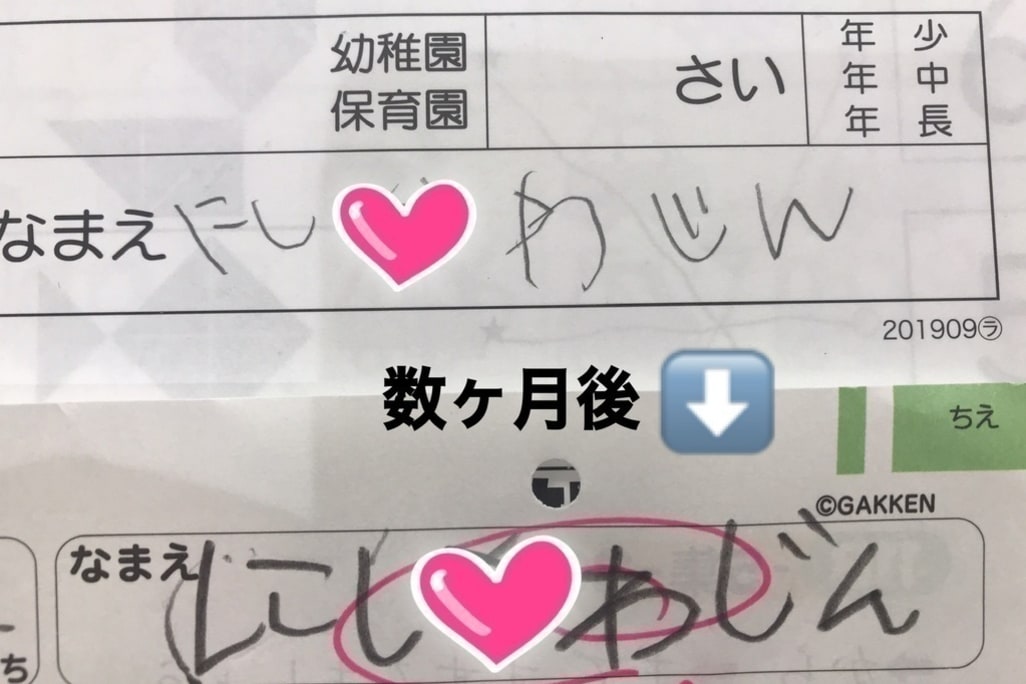 幼稚園
保育園
さい
年少
年中
年長
なまえ にし わじん
201909㋶
数ヶ月後
ちえ
©GAKKEN
なまえ にし わじん
ち